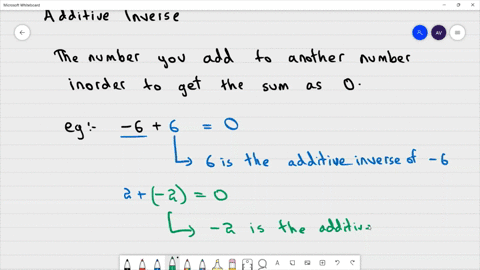 Microsoft Whiteboard
Additive Inverse
AV
The number you add to another number
inorder to get the sum as 0.
eg:- -6 + 6 = 0
6 is the additive inverse of -6
2 + (-2) = 0
-2 is the additiv